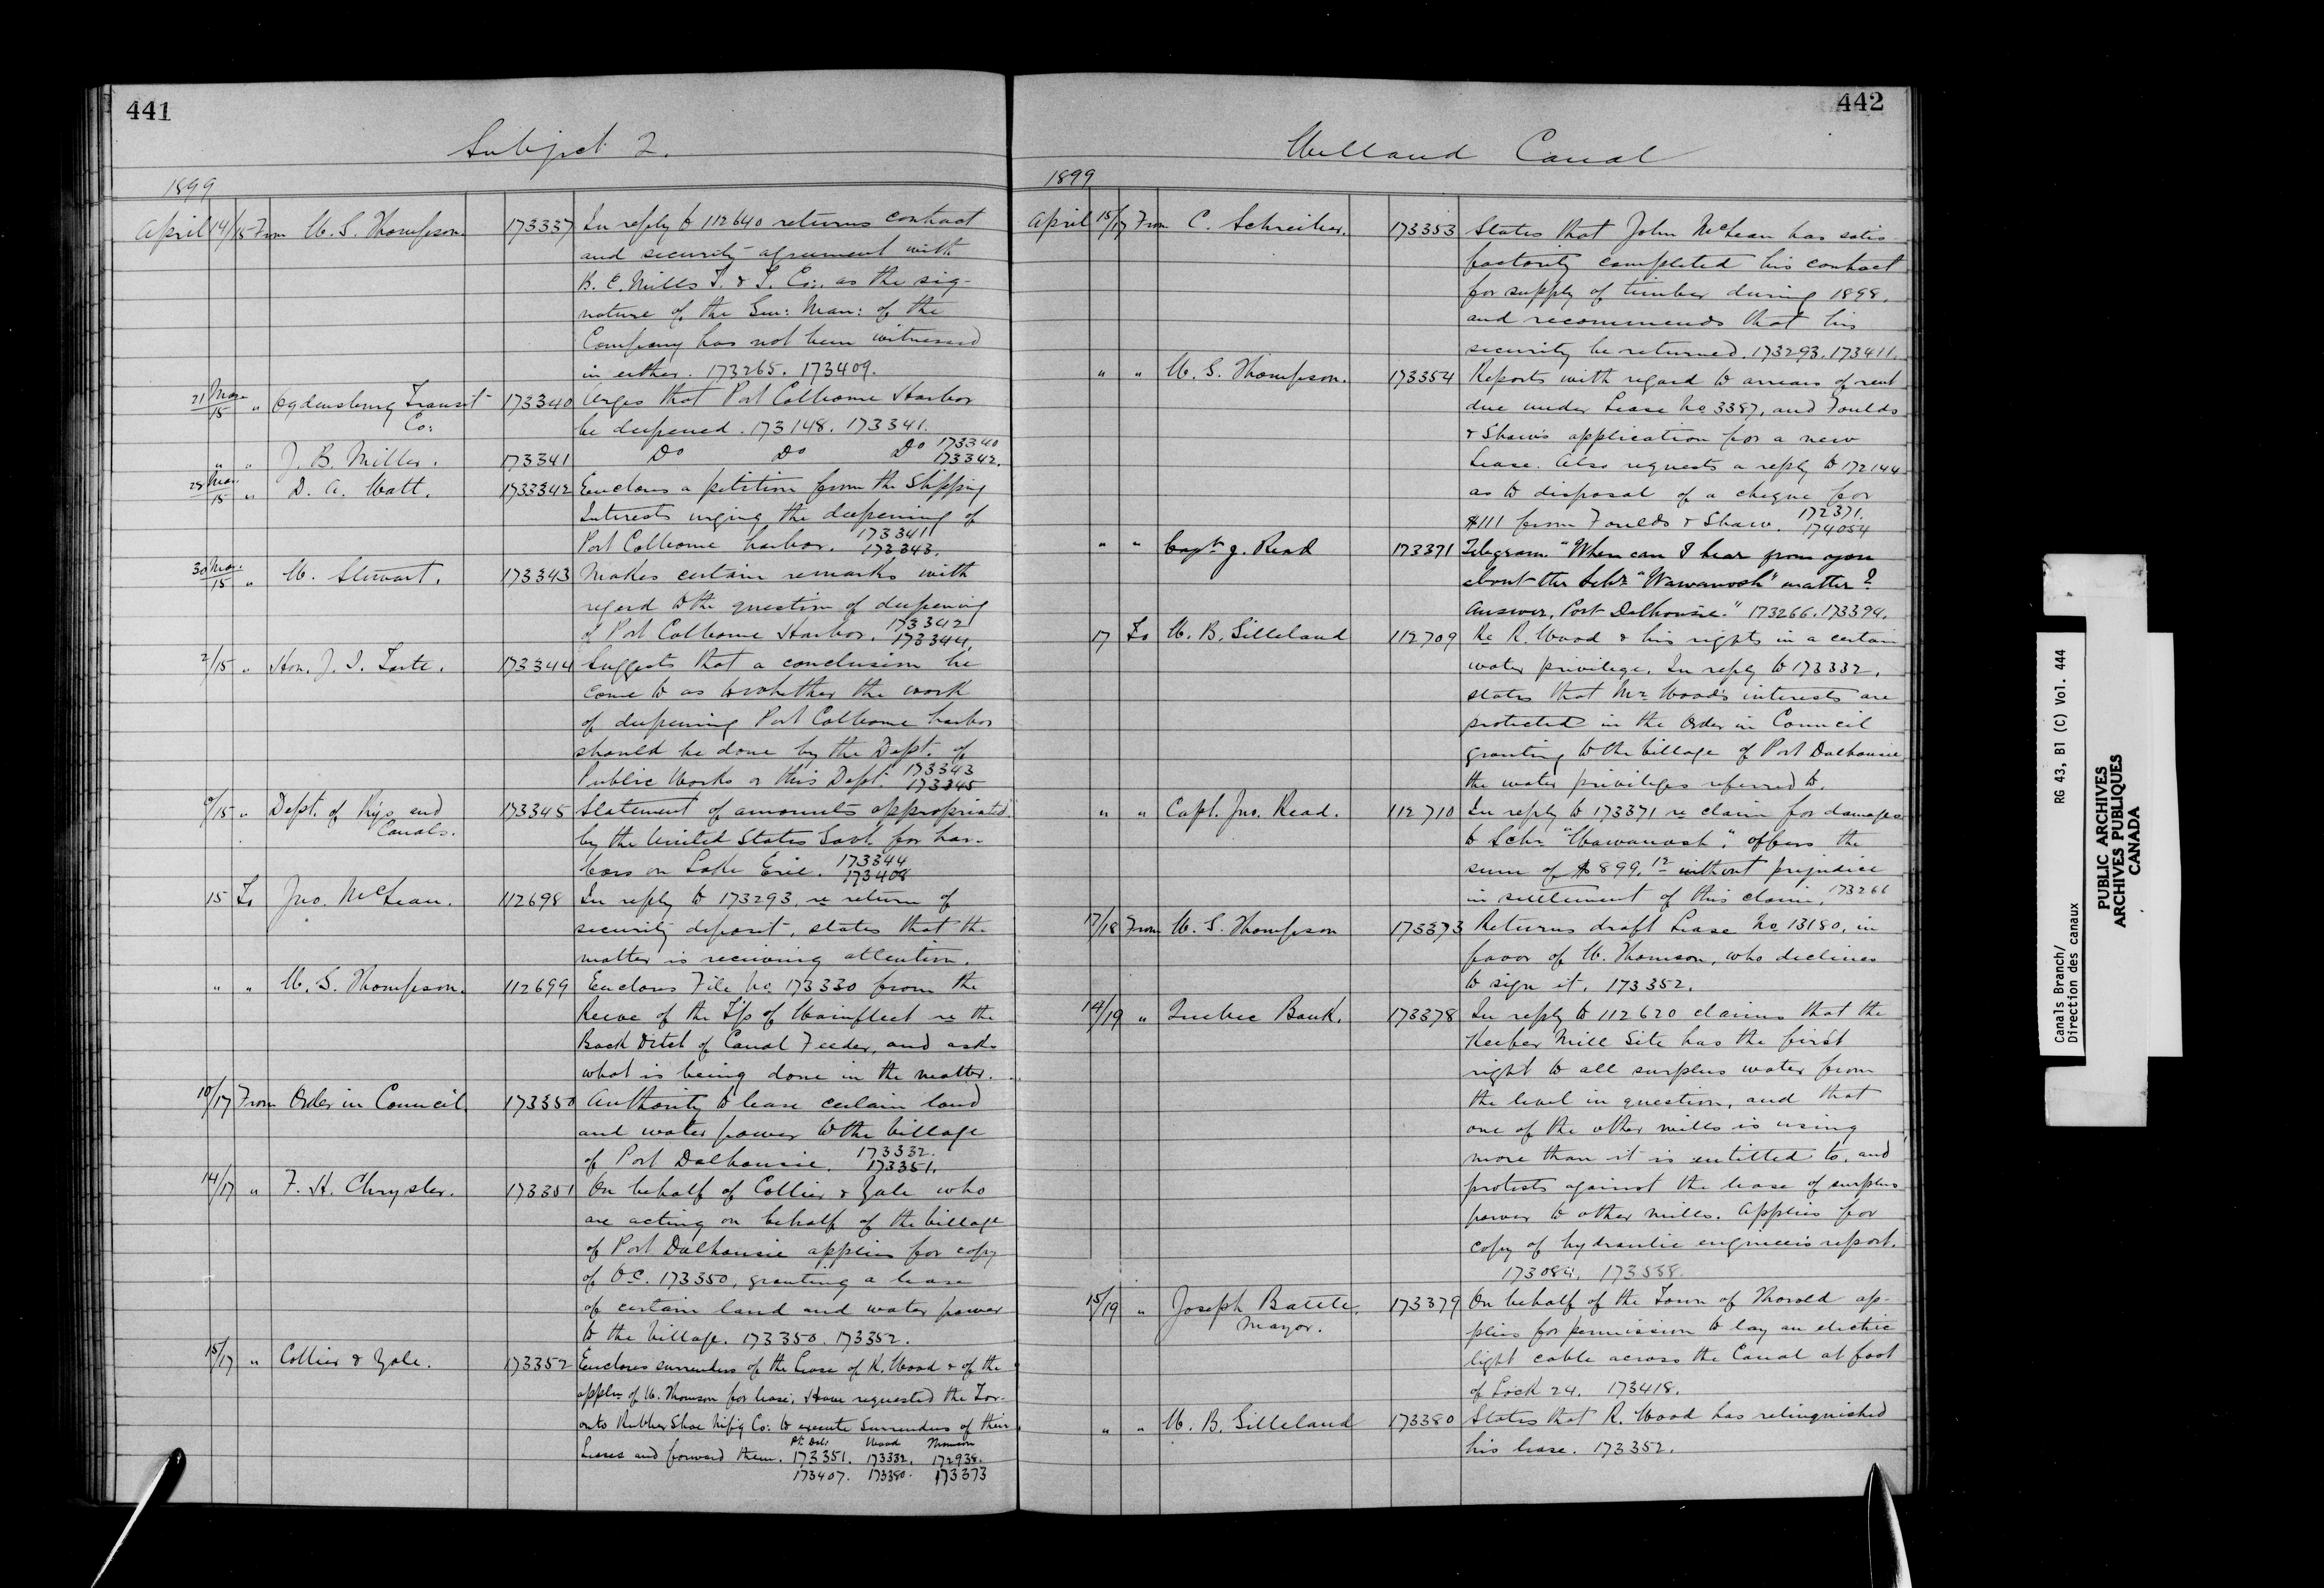 441
Subject 2.
1899
April 14/15 From W. S. Thompson. 173337 In reply to 112640 returns contract
and security agreement with
B. C. Mills T. & T. Co:, as the sig-
nature of the Gen: Man: of the
Company has not been witnessed
in either. 173265. 173409.
21 Mar/15 " Ogdensburg Transit Co: 173340 Urges that Port Colborne Harbor
be deepened. 173148. 173341.
" " J. B. Miller. 173341 Do Do Do 173340
173342.
28 Mar/15 " D. A. Watt. 173342 Encloses a petition from the Shipping
Interests urging the deepening of
Port Colborne harbor. 173341
173343.
30 Mar./15 " W. Stewart. 173343 Makes certain remarks with
regard to the question of deepening
of Port Colborne Harbor. 173342
173344.
2/15 " Hon. J. I. Tarte. 173344 Suggests that a conclusion be
come to as to whether the work
of deepening Port Colborne harbor
should be done by the Dept. of
Public Works or this Dept. 173343
173345
/15 " Dept. of Rys and Canals. 173345 Statement of amounts appropriated
by the United States Govt. for har-
bors on Lake Erie. 173344
173408
15 To Jno. McLean. 112698 In reply to 173293, re return of
security deposit, states that the
matter is receiving attention.
" " W. S. Thompson. 112699 Encloses File No. 173330 from the
Reeve of the T'p of Wainfleet re the
Back Ditch of Canal Feeder, and asks
what is being done in the matter.
10/17 From Order in Council. 173350 Authority to lease certain land
and water power to the Village
of Port Dalhousie. 173332.
173351.
14/17 " F. H. Chrysler. 173351 On behalf of Collier & Yale who
are acting on behalf of the Village
of Port Dalhousie applies for copy
of O.C. 173350, granting a lease
of certain land and water power
to the Village. 173350. 173352.
15/17 " Collier & Yale. 173352 Encloses surrenders of the Lease of R. Wood & of the
appln of W. Thomson for lease. Have requested the Tor-
onto Rubber Shoe M'f'g Co. to execute Surrenders of their
Leases and forward them. Pt. Dal. Wood Thomson
173351. 173332. 172938.
173407. 173380. 173373
442
Welland Canal
1899
April 15/17 From C. Schreiber. 173353 States that John McLean has satis-
factorily completed his contract
for supply of timber during 1898,
and recommends that his
security be returned. 173293. 173411.
" " W. S. Thompson. 173354 Reports with regard to arrears of rent
due under Lease No. 3387, and Foulds
& Shaw's application for a new
Lease. Also requests a reply to 172144
as to disposal of a cheque for
$111 from Foulds & Shaw. 172371.
174054
" " Capt J. Read 173371 Telegram. "When can I hear from you
about the Schr. "Wawanosh" matter?
Answer, Port Dalhousie." 173266. 173394.
17 To W. B. Gilleland 112709 Re R. Wood & his rights in a certain
water privilege. In reply to 173332,
states that Mr. Wood's interests are
protected in the Order in Council
granting to the Village of Port Dalhousie
the water privileges referred to.
" " Capt. Jno. Read. 112710 In reply to 173371 re claim for damages
to Schr "Wawanosh", offers the
sum of $899.12 without prejudice
in settlement of this claim. 173266
17/18 From W. S. Thompson 173373 Returns draft Lease No. 13180, in
favor of W. Thomson, who declines
to sign it. 173352.
14/19 " Quebec Bank. 173378 In reply to 112620 claims that the
Keefer Mill Site has the first
right to all surplus water from
the level in question, and that
one of the other mills is using
more than it is entitled to, and
protests against the lease of surplus
power to other mills. Applies for
copy of hydraulic engineer's report.
173089. 173538.
15/19 " Joseph Battle. Mayor. 173379 On behalf of the Town of Thorold ap-
plies for permission to lay an electric
light cable across the Canal at foot
of Lock 24. 173418.
" " W. B. Gilleland 173380 States that R. Wood has relinquished
his lease. 173352.
Canals Branch/
Direction des canaux
RG 43, B1 (C) Vol. 444
PUBLIC ARCHIVES
ARCHIVES PUBLIQUES
CANADA